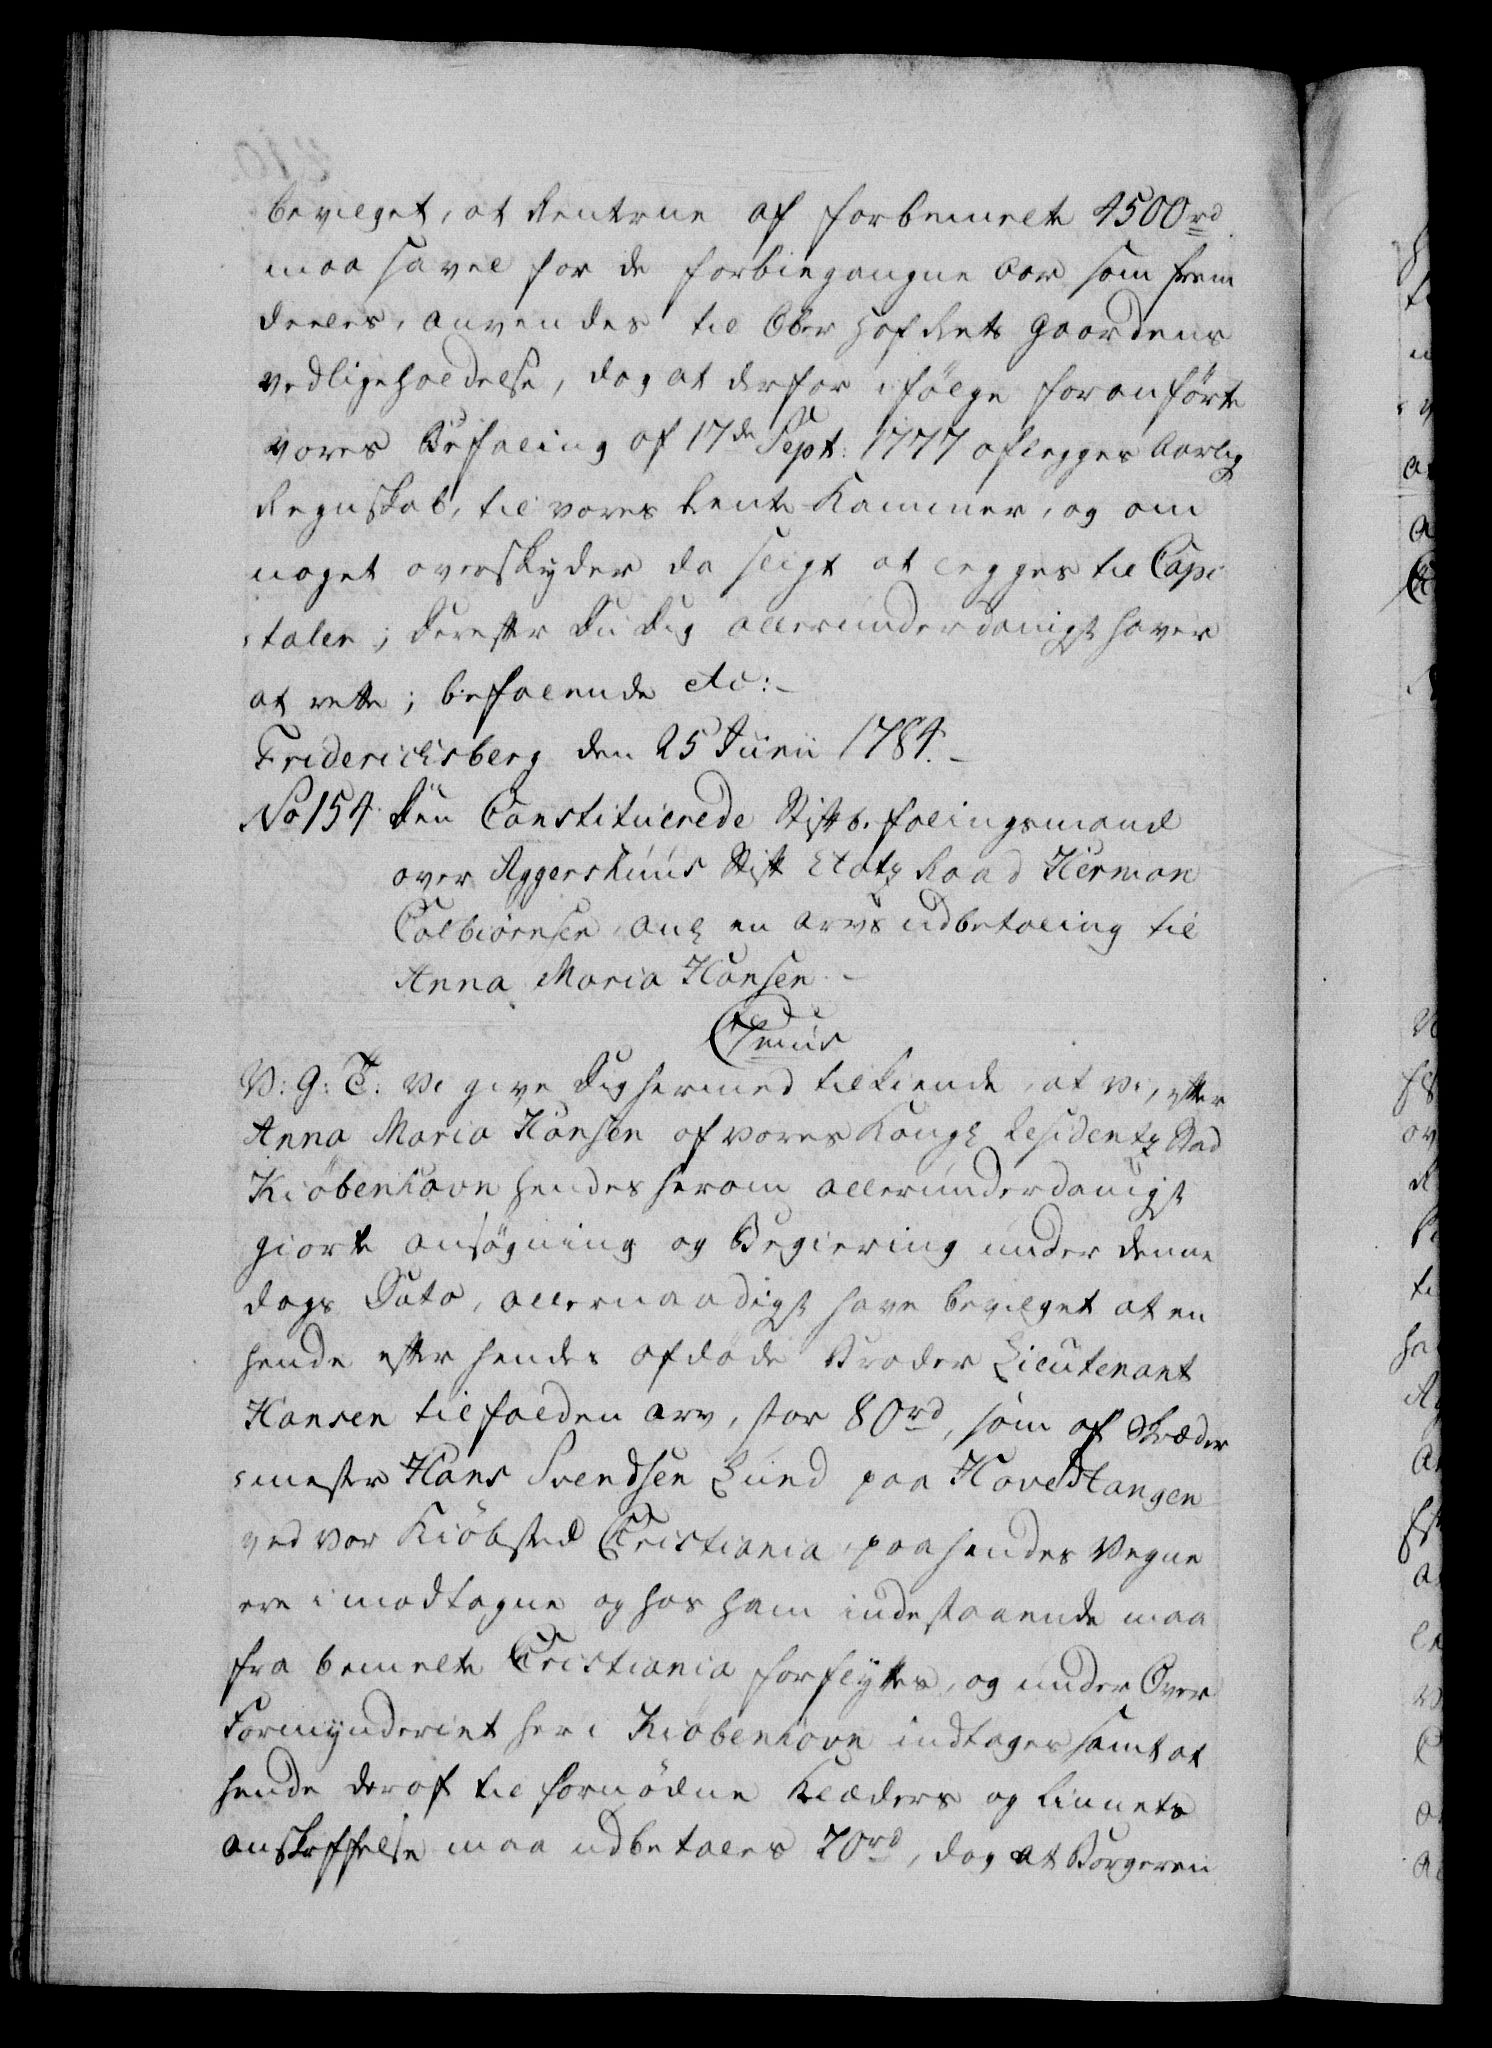 bevilget, at Renterne af forbemelte 4500rd
maa savel for de forbiegangne Aar som frem
deeles, anvendes til Ober Hof Rets Gaardens
vedligeholdelse, dog at derfor i følge foranførte
vores Befaling af 17de Sept: 1777 aflegges Aarlig
Regnskab, til vores Rente Kammer, og om
noget overskyder da sligt at legges til Capi
-talen; Derefter Du Dig allerunderdanigst haver
at rette; befalende etc:-
Friderichsberg den 25 Junii 1784.-
No 154. Den Constituerede Stiftbefalingsmand
over Aggershuus Stift Etatz Raad Herman
Colbiørnsen, anl en arvs udbetaling til
Anna Maria Hansen.-
C7mus
V: G: T: Vi give Dig hermed tilkiende, at vi, efter
Anna Maria Hansen af vores Kongl Residentz Stad
Kiøbenhavn hendes herom allerunderdanigst
giorte ansøgning og Begiering under denne
dags Dato, allernaadigst have bevilget at en
hende efter hendes afdøde Broder Lieutenant
Hansen tilfalden arv, stor 80rd, som af Skræder
-mester Hans Svendsen Lund paa Hovedtangen
ved vor Kiøbsted Christiania, paa hendes Vegne
ere imodtagne og hos ham indestaaende maa
fra bemelte Christiania forflyttes, og under Over
Formynderiet her i Kiøbenhavn indtages samt at
hende deraf til fornødne Klæders og Linnets
anskaffelse maa udbetales 20rd, dog at Borgeren